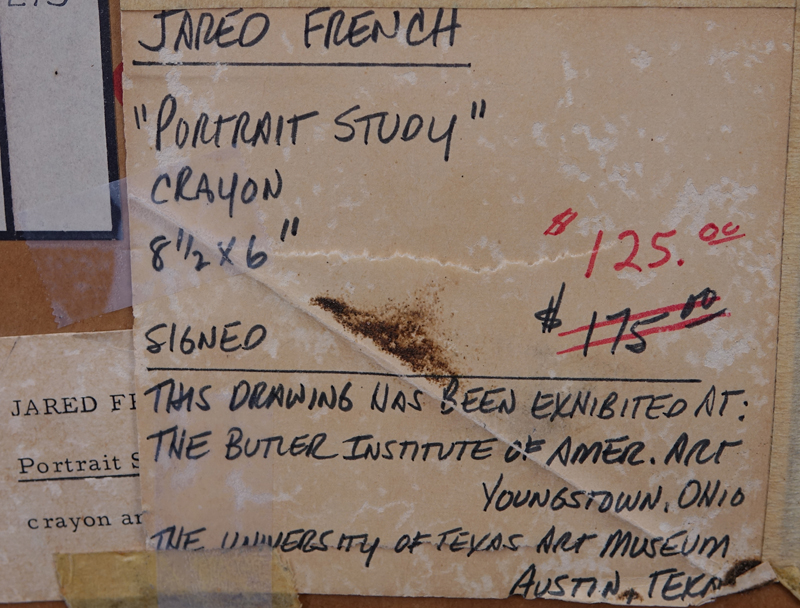 JARED FRENCH
"PORTRAIT STUDY"
CRAYON
8 1/2 X 6"
$125.00
$175.00
SIGNED
THIS DRAWING HAS BEEN EXHIBITED AT:
THE BUTLER INSTITUTE OF AMER. ART
YOUNGSTOWN, OHIO
THE UNIVERSITY OF TEXAS ART MUSEUM
AUSTIN, TEXA
JARED F
Portrait S
crayon a